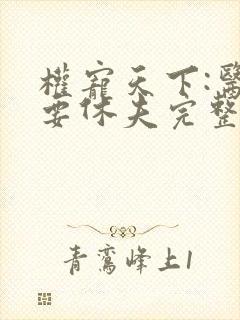 權寵天下:醫
要休夫完整
青鸞峰上1